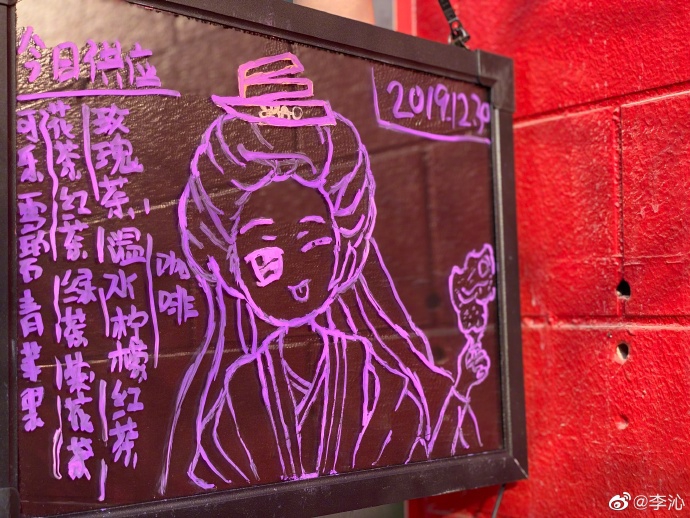 今日供应
2019.12.30
可乐 雪碧 青苹果
花茶 红茶 绿茶 菊花茶
玫瑰茶 温水 柠檬红茶
咖啡
@李沁